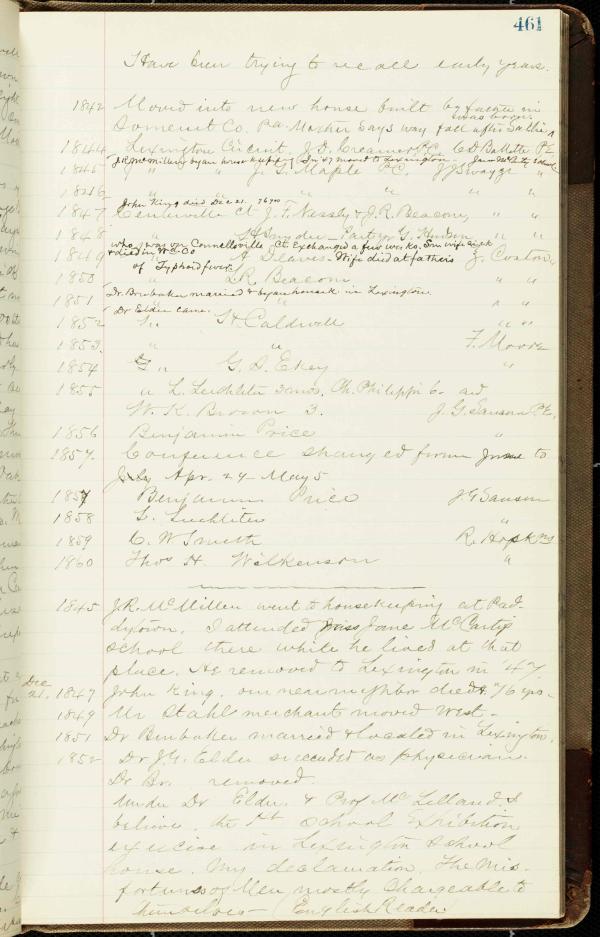 461
Have been trying to recall early years.
1842 Moved into new house built by father in
Somerset Co. Pa. Mother says was fall after Sallie was born.
1844 Lexington Circuit. J. D. Cramer P.C. C D Battelle P.E
J.R. McMillen began housekeeping In 47 moved to Lexington
1845 " " J. G. Maple P.C. J J Swayze "
1846 " " " " "
John King died Dec 21. 76 yrs
1847 Centerville Ct J. F. Nessly & J. R. Beacom " "
1848 " S H Snyder Part yr G. Hudson " "
who was on Connellsville Ct. Exchanged a few weeks. Sn wife sick
& died in W. Co
1849 " A Deaves - Wife died at fathers J. Coston "
of Typhoid fever.
1850 " J R Beacom " "
Dr. Brubaker married & began housek in Lexington
1851 " " " "
Dr Elder came.
1852 S " H. Caldwell " "
1853 " " F. Moore
1854 G " G. D. Ekey "
1855 " L. Leichliter 3 mos. Ch. Philippi 6. and
W. K. Brown 3. J. G. Sansom P.E.
1856 Benjamin Price "
1857. Conference changed from June to
July Apr. 29 - May 5
1857 Benjamin Price J G Sansom
1858 L. Luchliter "
1859 C. W Smith R. Hopkins
1860 Thos H. Wilkenson "
1845 J.R. McMillen went to housekeeping at Pad-
dytown. I attended Miss Jane McCarty
school there while he lived at that
place. He removed to Lexington in '47.
Dec
21. 1847 John King, our near neighbor died 76 yrs -
1849 Mr Stahl merchant moved West -
1851 Dr Brubaker married & located in Lexington.
1852 Dr J. G. Elder succeeded as physician.
Dr Br. removed.
Under Dr Elder & Prof McLelland. I
believe the 1st School Exhibition
exercise in Lexington School
house. My declamation, The Mis-
fortunes of Men mostly Chargeable to
themselves - (English Reader)